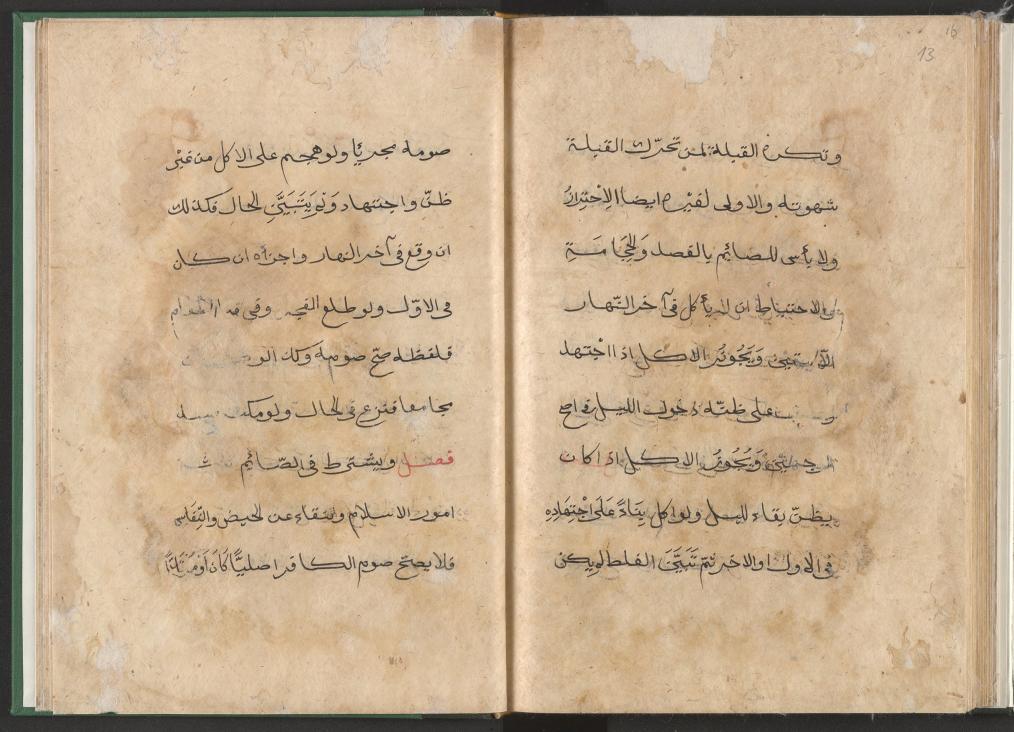 13
وتكره القبلة لمن تحرك القبلة
شهوته والاولى لغيره ايضا الاحتراز
ولا بأس للصائم بالفصد وَالحِجَامَةِ
الاحتياط ان لا يأكل في آخر النّهار
الّا بيقين وَيَجُوزُ الاكل اذا اجتهد
على ظنّه دخول الليل في اصح
وَيَجُوزُ الاكل اذا كان
يظنّ بقاء لليل ولو اكل بِنَاءً عَلَى اجْتِهَادِهِ
في الاول او الاخر ثم تَبَيَّنَ الغلط لم يكن
صومه مجزيًا ولو هجم على الاكل من غير
ظنّ واجتهاد وَلَم يَتَبَيَّنِ الحال فكذلك
ان وقع في آخر النهار واجزأه ان كان
في الاوّل ولو طلع الفجر وفي الطعام
فلفظه صحّ صومه وكذ لو
مجامعا فنزع في الحال ولو مكث
فصل ويشترط في الصّائم
امور الاسلام ونقاء عن الحيض والنِّفَاسِ
فلا يصحّ صوم الكافر اصليًّا كَانَ أَوْ مُرْتَدًّا